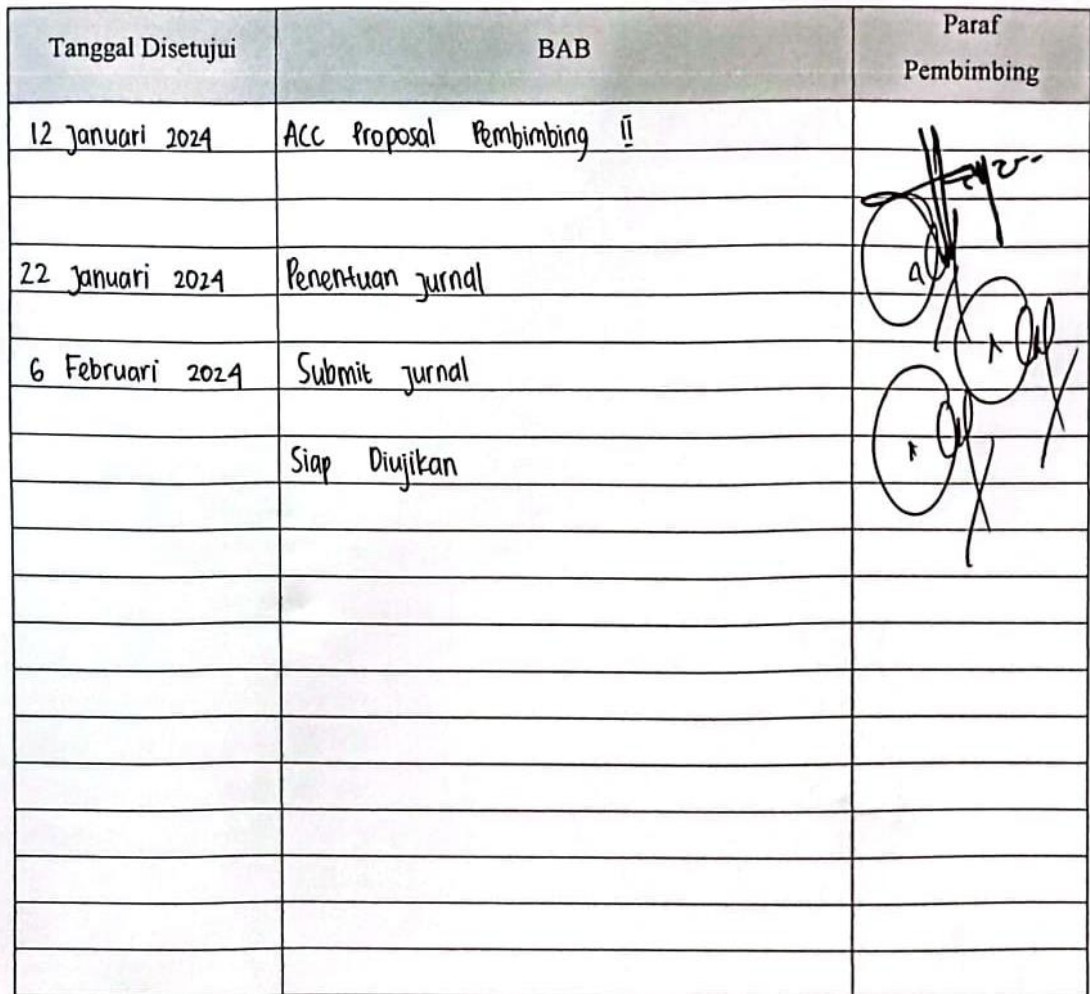 Tanggal Disetujui BAB Paraf
Pembimbing
12 Januari 2024 ACC Proposal Pembimbing II
22 Januari 2024 Penentuan Jurnal
6 Februari 2024 Submit Jurnal
Siap Diujikan